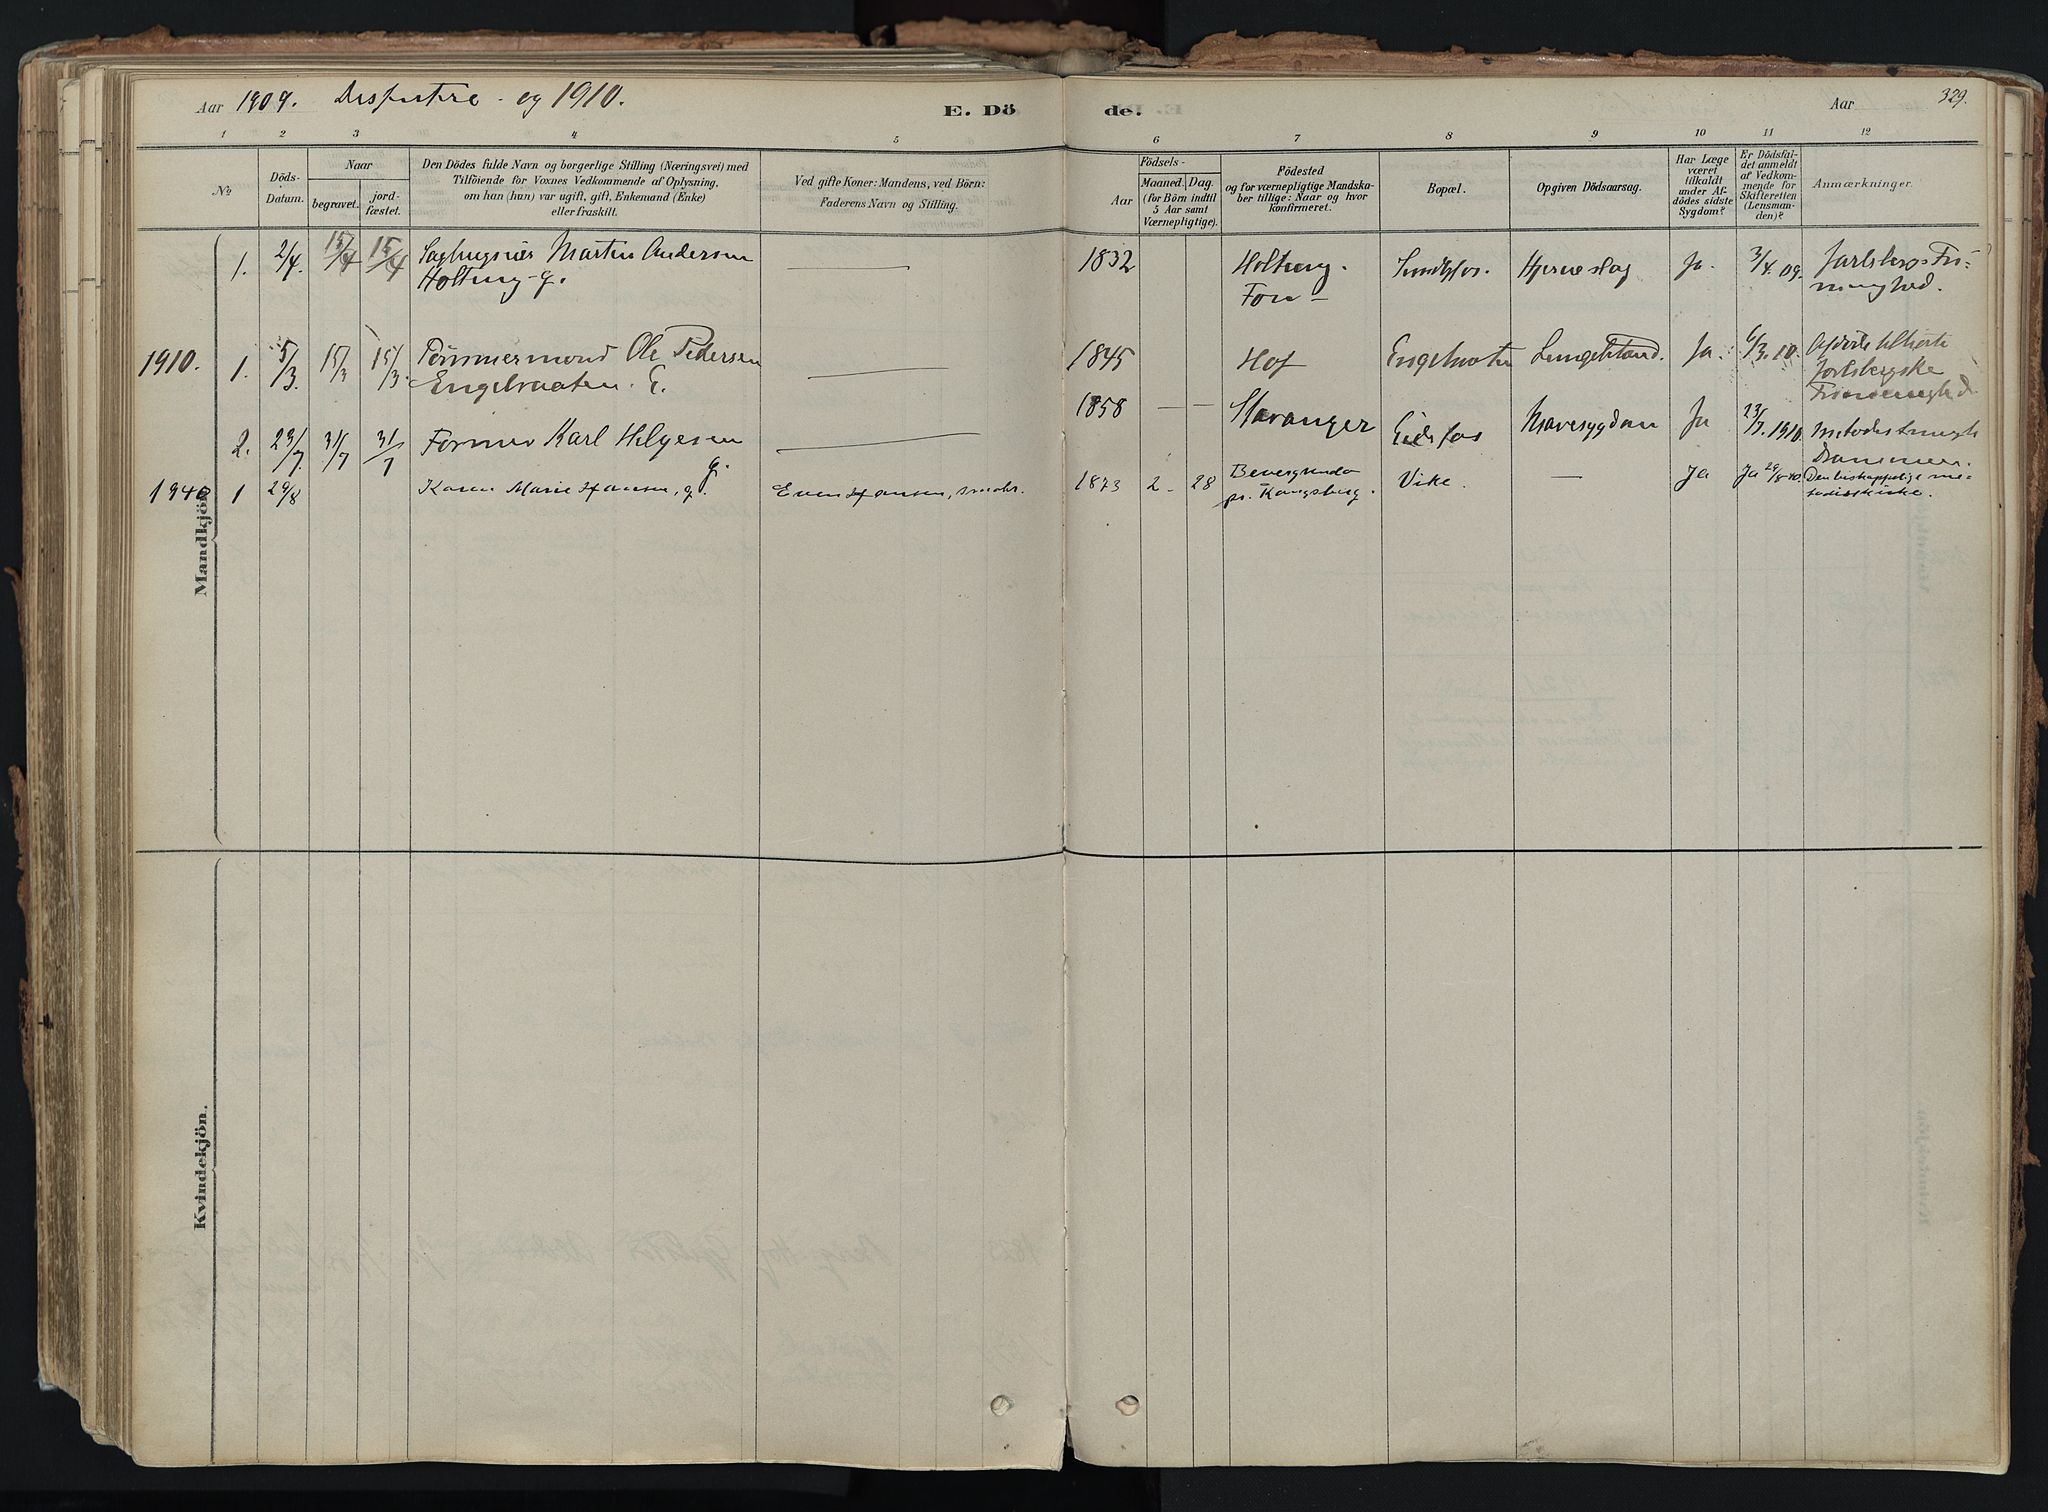 Aar 1909. og 1910.
E. Dö
de.
Aar
329.
1 2 3 4 5 6 7 8 9 10 11 12
No
Döds-
Datum.
Naar
begravet.
jord-
fæstet.
Den Dödes fulde Navn og borgerlige Stilling (Næringsvei) med
Tilföiende for Voxnes Vedkommende af Oplysning,
om han (hun) var ugift, gift, Enkemand (Enke)
eller fraskilt.
Ved gifte Koner: Mandens, ved Börn:
Faderens Navn og Stilling.
Födsels-
Aar
Maaned. Dag.
(for Börn indtil
5 Aar samt
Værnepligtige).
Födested
og for værnepligtige Mandska-
ber tillige: Naar og hvor
konfirmeret.
Bopæl.
Opgiven Dödsaarsag.
Har Læge
været
tilkaldt
under Af-
dödes sidste
Sygdom?
Er Dödsfal-
det anmeldt
af Vedkom-
mende for
Skifteretten
(Lensman-
den)?
Anmærkninger.
1. 2/4. 15/4 15/4 Martin Andersen 1832 Sundfos. Hjerneslag Ja. 3/4. 09.
g.
1910. 1. 5/3. 15/3 15/3. Tömmermand Ole Pedersen 1845 Hof Ja. 6/3. 10.
Jarlsbergske
2. 23/7. 31/7 31/7 Former Karl Helgesen g. 1858 — — Stavanger Eidsfos Mavesygdom Ja 23/7. 1910.
Drammen.
1940 1 29/8 Karen Marie Hansen, g. Even Hansen, 1873 2 - 28 Vike. — Ja Ja 29/8-40. Den biskoppelige me-
pr. Kongsberg.
todistkirke.
Mandkjön.
Kvindekjön.